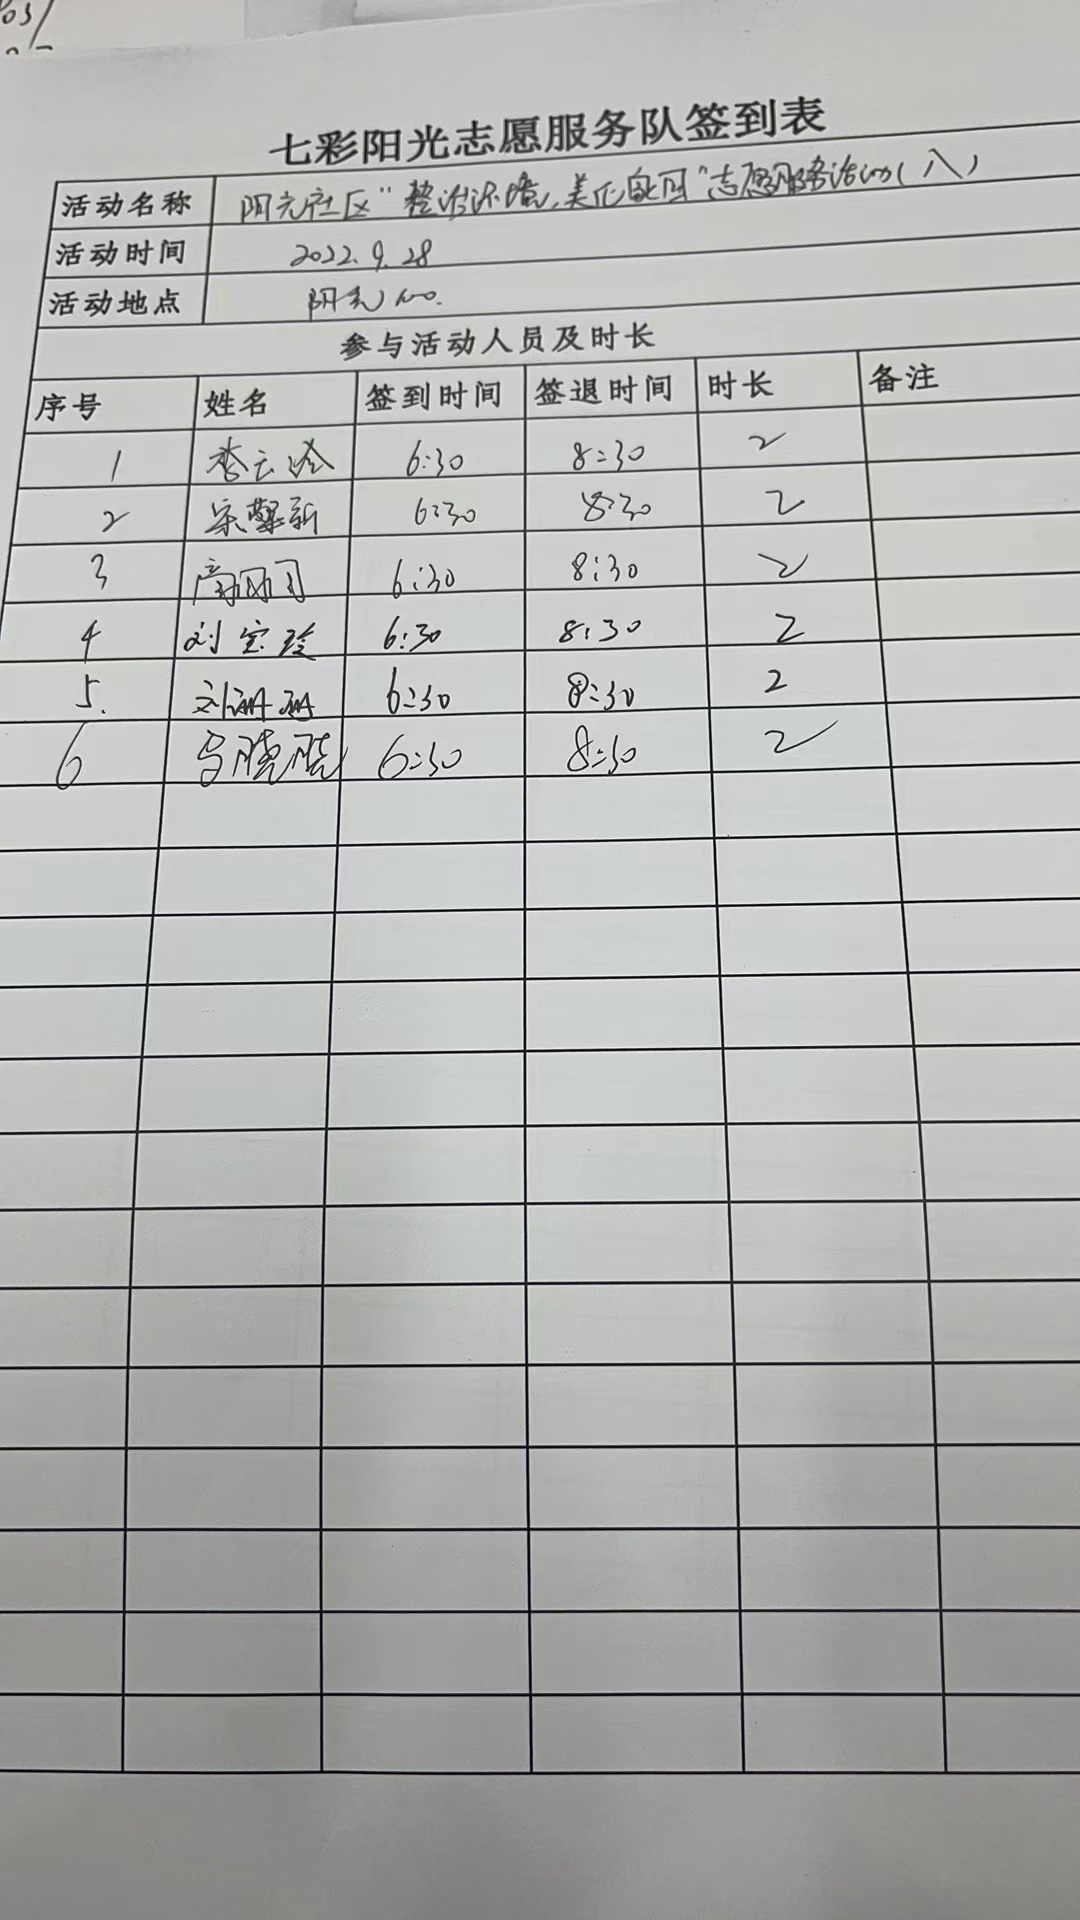 七彩阳光志愿服务队签到表
活动名称 阳光社区"整治环境,美化家园"志愿服务活动(八)
活动时间 2022.9.28
活动地点 阳光
参与活动人员及时长
序号 姓名 签到时间 签退时间 时长 备注
1 李云 6:30 8:30 2
2 宋 新 6:30 8:30 2
3 6:30 8:30 2
4 刘宝玲 6:30 8:30 2
5. 刘珊珊 6:30 8:30 2
6 马晓晓 6:30 8:30 2